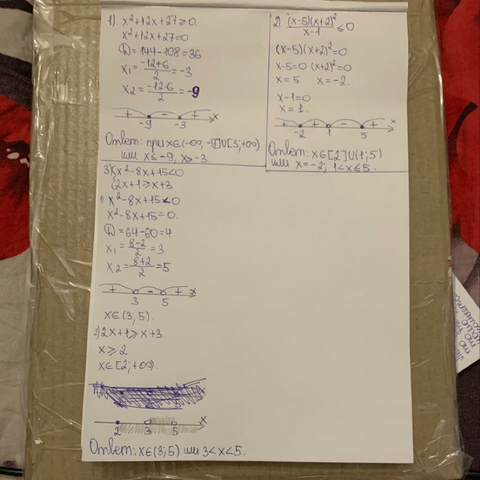 1). x²+12x+27≥0.
x²+12x+27=0
D=144-108=36
x₁=(-12+6)/2=-3
x₂=(-12-6)/2=-9
+ - + x
-9 -3
Ответ: при x∈(-∞; -9]∪[3;+∞)
или x≤-9, x≥-3
2) (x-5)(x+2)²/(x-1)≤0
(x-5)(x+2)²=0
x-5=0 (x+2)²=0
x=5 x=-2.
x-1=0
x=1.
+ + - + x
-2 1 5
Ответ: x∈[2]∪(1;5)
или x=-2; 1<x≤5.
3) x²-8x+15<0
2x+1≥x+3
1) x²-8x+15<0
x²-8x+15=0.
D=64-60=4
x₁=(8-2)/2=3
x₂=(8+2)/2=5
+ - + x
3 5
x∈(3;5).
2) 2x+1≥x+3
x≥2
x∈[2;+∞).
x
2 3 5
Ответ: x∈(3;5) или 3<x<5.